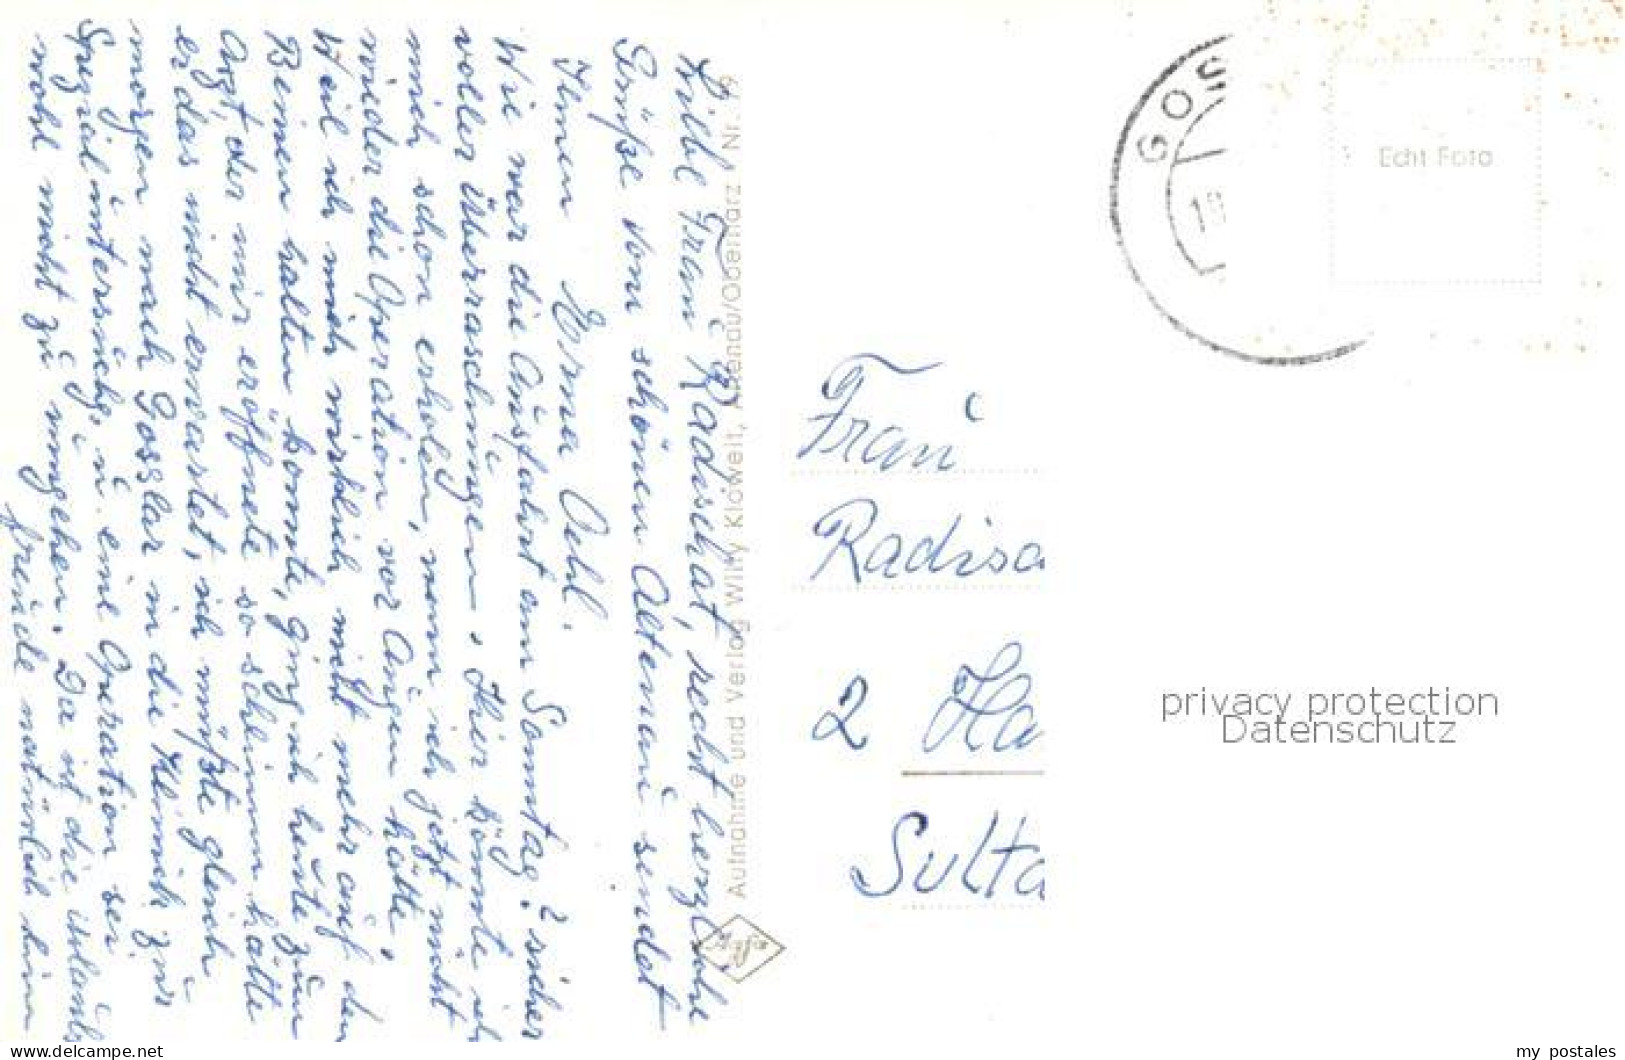 Liebe Frau Radischat, recht herzliche
Grüße vom schönen Altenau sendet
Ihnen Erna Oehl.
Wie war die Ausfahrt am Sonntag? sicher
voller Überraschungen. Hier könnte ich
mich schon erholen, wenn ich jetzt nicht
wieder die Operation vor Augen hätte,
Weil ich mich wirklich nicht mehr auf den
Beinen halten konnte, ging ich heute zum
Arzt, der mir eröffnete so schlimm hätte
er das nicht erwartet, ich müßte gleich
morgen nach Gosslar in die Klinik zur
Spezialuntersuchg, u. eine Operation sei
wohl nicht zu umgehen. Da ist die
freude natürlich hin
Aufnahme und Verlag Willy Klöwelt, Altenau/Oberharz Nr. 79
GOS
19
Echt Foto
Frau
Radisc
2 Ha
Sulta
privacy protection
Datenschutz
www.delcampe.net
my_postales